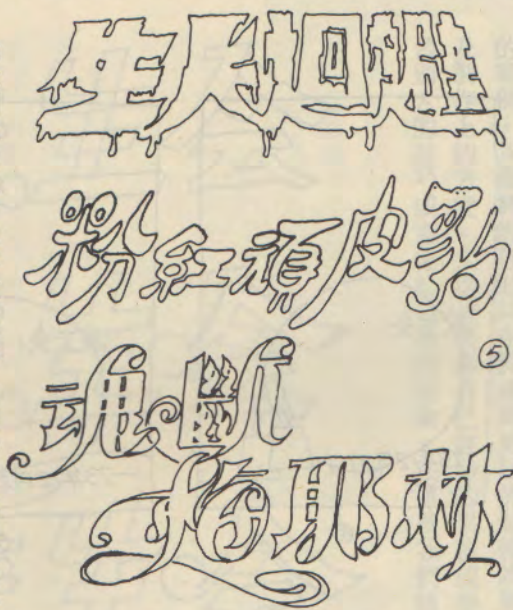 生人迴避
粉紅頑皮豹
⑤
魂斷
梅耶林